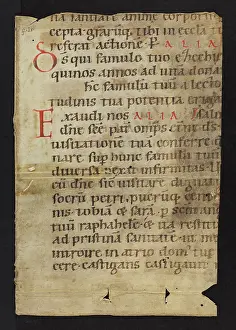 na sanitate anime corporc
cepta grarūq; tibi in eccla tu
restrat actione P ALIA
Os qui famulo tuo ezechie
quinos annos ad uita dona
hc famulū tuū a lecto
tudinis tua potentia erigat
Exaudi nos ALIA
dn̄e sc̄e pat omp̄s et̄ne ds̄
uisitatione tua conferre
nare sup hunc famulū tuū
diuersa uexat infirmitas
eū dn̄e sic uisitare dignar
socrū petri, puerūq; cen
nis, tobiā ce sarā. p sc̄m
tuū raphahelē. ce ita restit
ad pristinā sanitate ut m
introire in atrio dom tue
cere. castigans castigaui